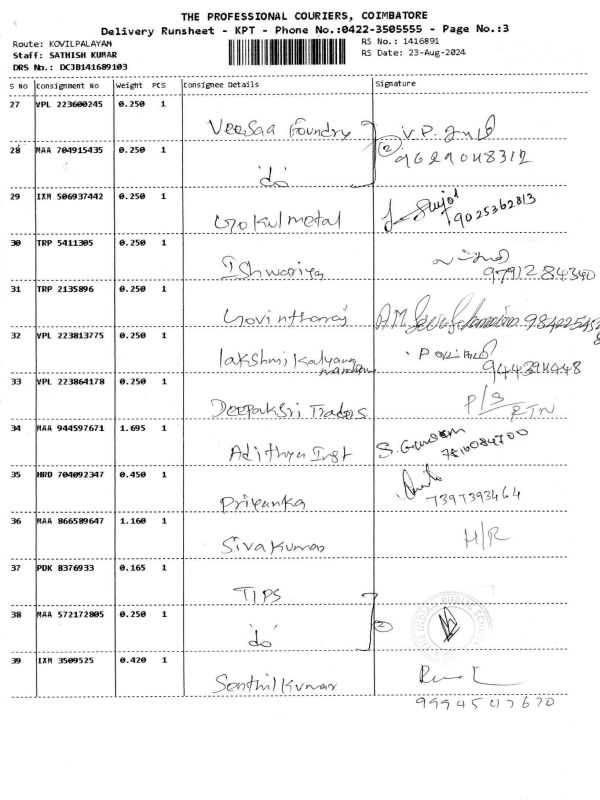 THE PROFESSIONAL COURIERS, COIMBATORE
Delivery Runsheet - KPT - Phone No.:0422-3505555 - Page No.:3
Route: KOVILPALAYAM
RS No.: 1416891
Staff: SATHISH KUMAR
RS Date: 23-Aug-2024
DRS No.: DCJB141689103
S No Consignment No Weight PCS Consignee Details Signature
27 VPL 223600245 0.250 1
Veesaa Foundry V.P.
28 MAA 704915435 0.250 1 2 9629048312
do
29 IXM 506937442 0.250 1
Gokul metal 9025362813
30 TRP 5411305 0.250 1
Ishwariya 9791284340
31 TRP 2135896 0.250 1
Govintharaj
32 VPL 223813775 0.250 1
lakshmi kalyana
33 VPL 223864178 0.250 1
Deepaksri Traders P/S RTN
34 MAA 944597671 1.695 1
Adithya Inst
35 HRD 704092347 0.450 1
Priyanka 7397393464
36 MAA 866589647 1.160 1
Sivakumar H/R
37 PDK 8376933 0.165 1
TIPS
38 MAA 572172805 0.250 1
do 2
39 IXM 3509525 0.420 1
Senthil Kumar